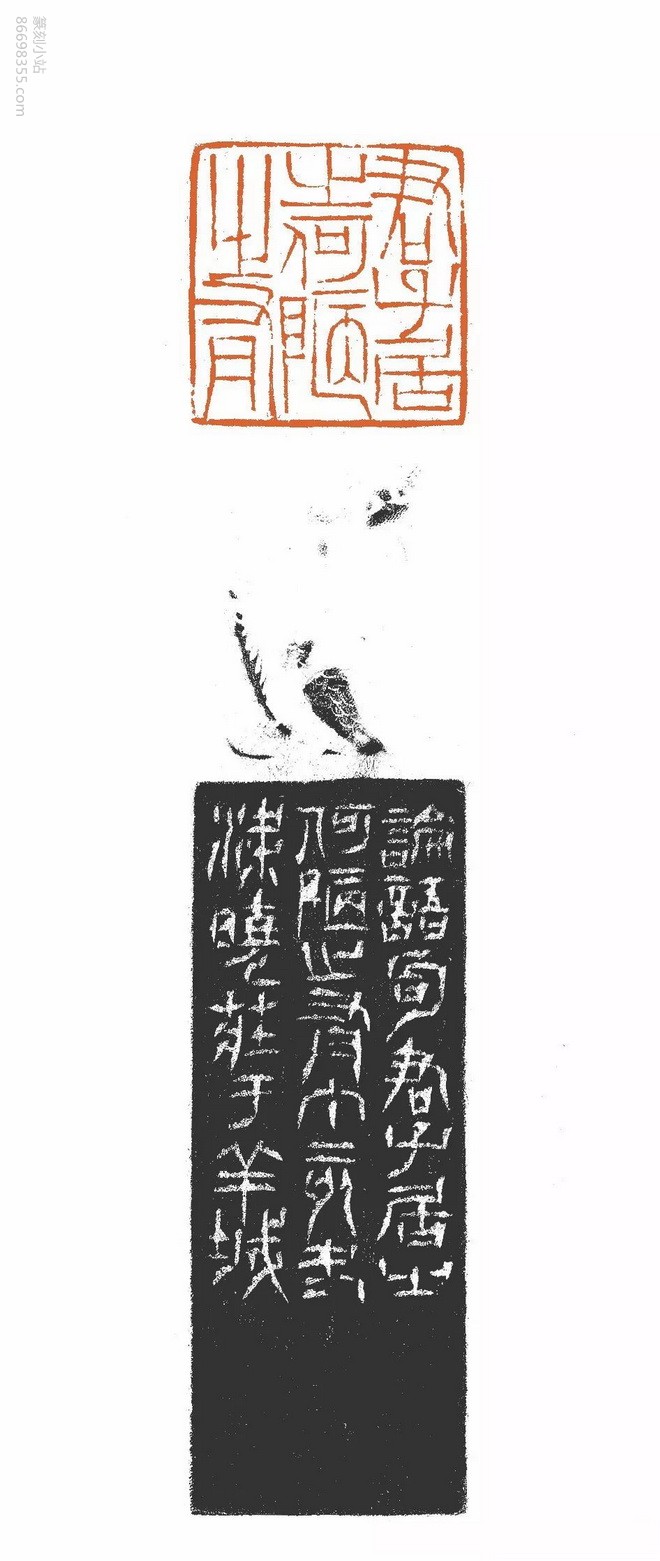 篆刻小站
86698355.com
君子居
之何陋
之有
論語句君子居之
何陋之有
曉莊于羊城